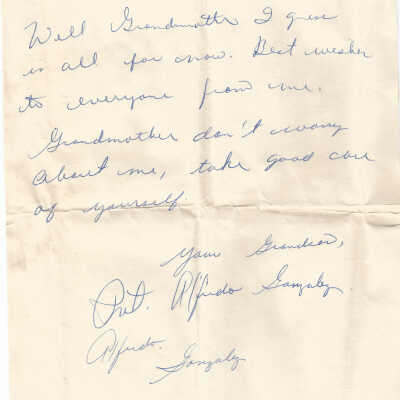 Well Grandmother I guess
is all for now. Best wishes
to everyone from me.
Grandmother don't worry
about me, take good care
of yourself.
Your Grandson,
Pvt. Alfredo Gonzalez.
Alfredo.
Gonzalez